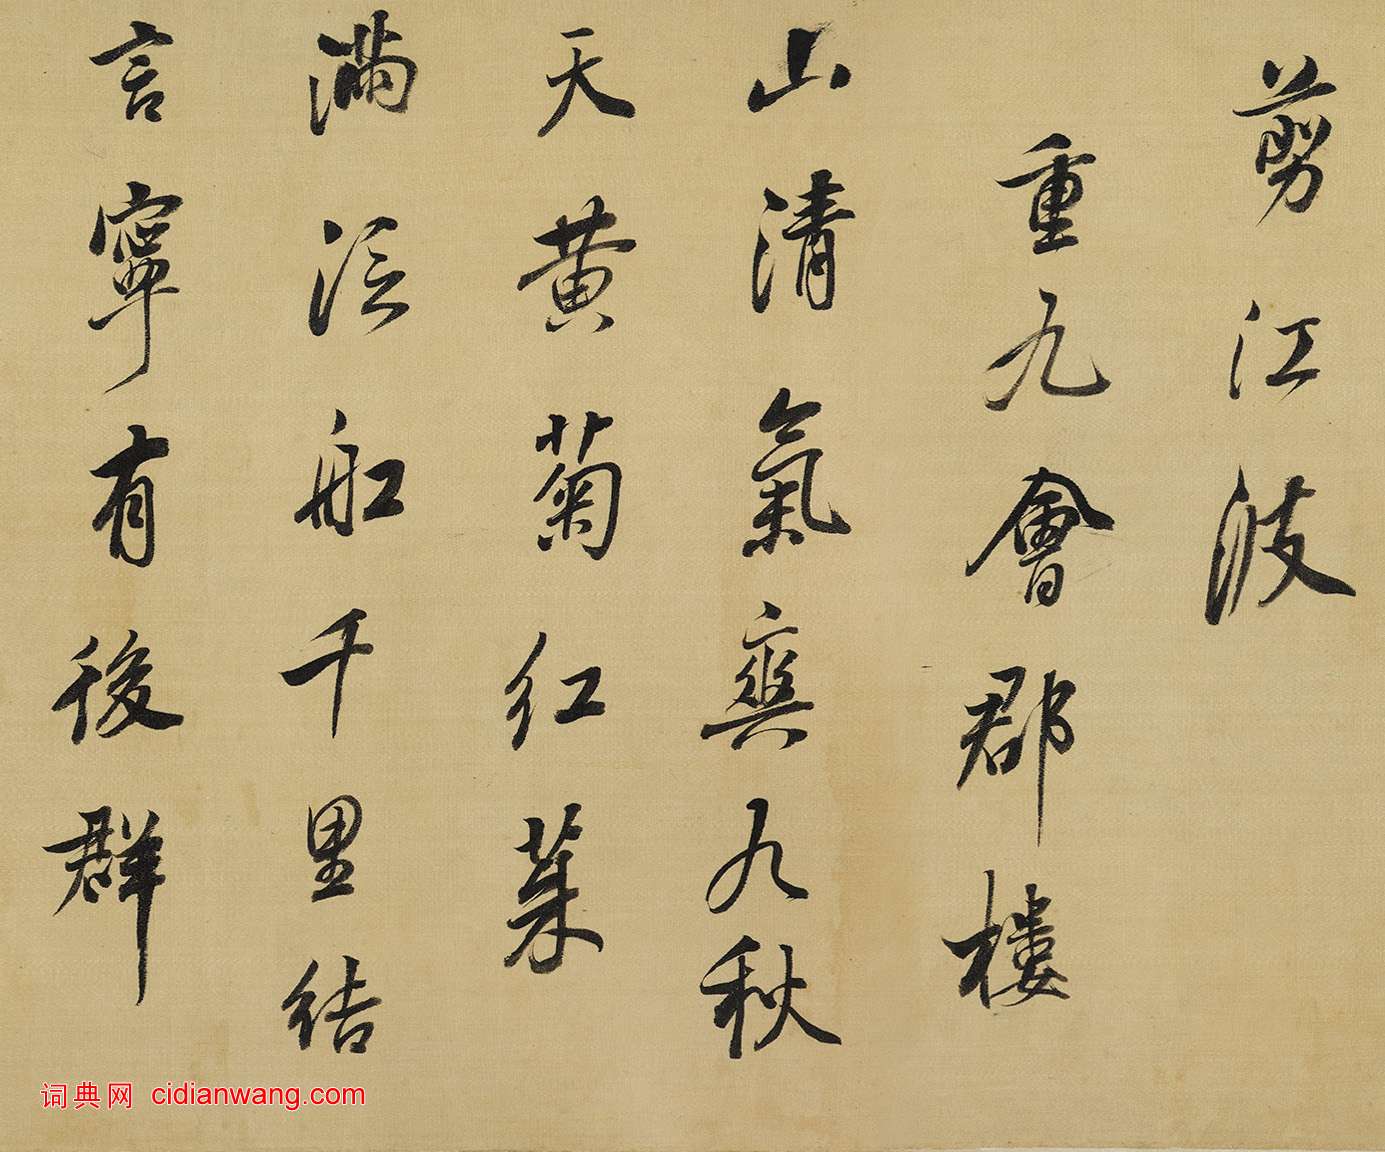 剪江波
重九會郡樓
山清氣爽九秋
天黄菊紅茱
滿泛舡千里結
言寧有後群
词典网 cidianwang.com